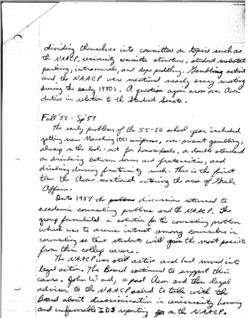 dividing themselves into committees on topics such as
the NAACP, University committee structure, student market
parking, intramurals, and dope peddling. Gambling arrest
and the NAACP were mentioned nearly every meeting
during the early 1950's. A question again arose over Aeon
duties in relation to the Student Senate.
Fall '55 - Sp '57
The early problems of the 55-56 school year included
getting new Marching 100 uniforms, ever-present gambling,
always on the look-out for homosexuals, a double standard
on drinking between dorms and fraternities, and
drinking during fraternity rush. This is the first
time the Aeon mentioned entering the area of Greek
Affairs.
1957 discussions returned to
academic counseling problems and the NAACP. The
group formulated a solution for the counseling problem
which was to arouse interest among counselors in
counseling so that students will gain the most assist
from their college career.
The NAACP was still active and had moved into
legal action. The Board continued to support their
cause. John Wood, a past Aeon and then legal
advisor to the NAACP asked to talk with the
Board about discrimination in university housing
and unfavorable IDS reporting on the NAACP.